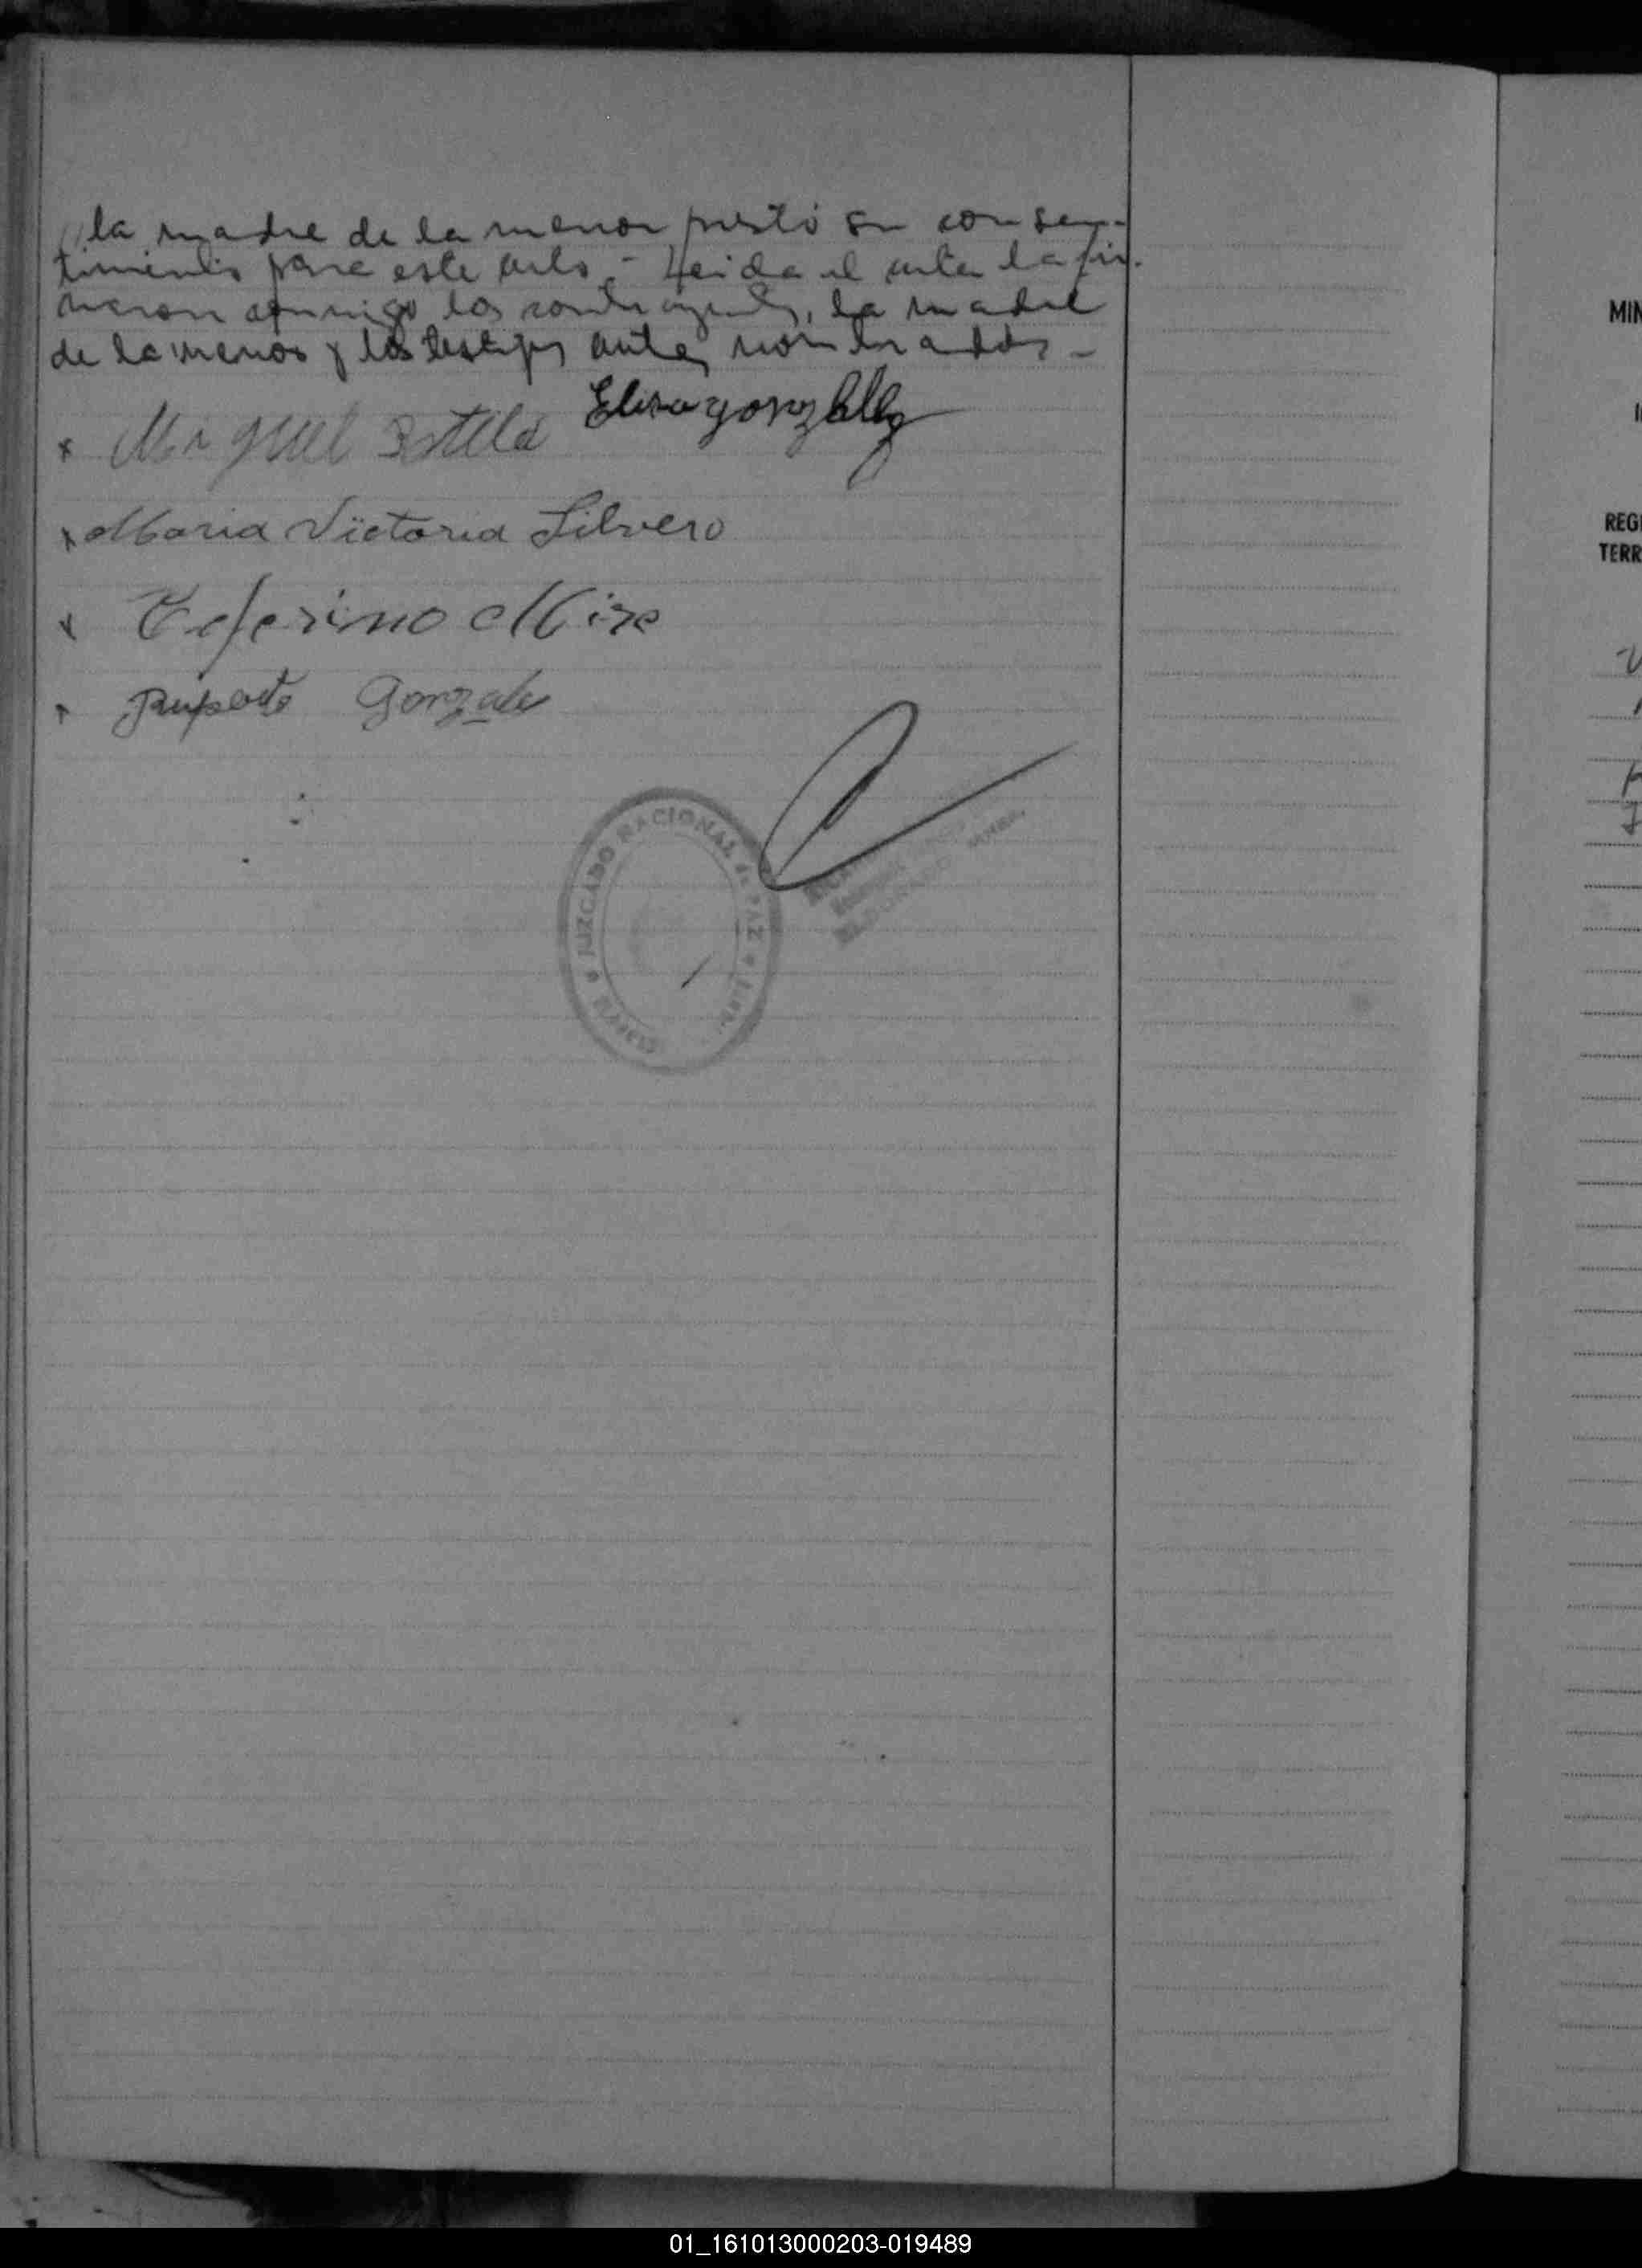 la madre de la menor prestó su consen-
timiento para este acto.- Leida el acta la fir-
maron conmigo los contrayentes, la madre
de la menor y los testigos antes nombrados -
x Miguel Estela Elisa Gonzalez
x Maria Victoria Silvero
x Ceferino Mire
x Ruperto Gonzalez
JUZGADO NACIONAL de PAZ
MIN
I
REGI
TERR
01_161013000203-019489